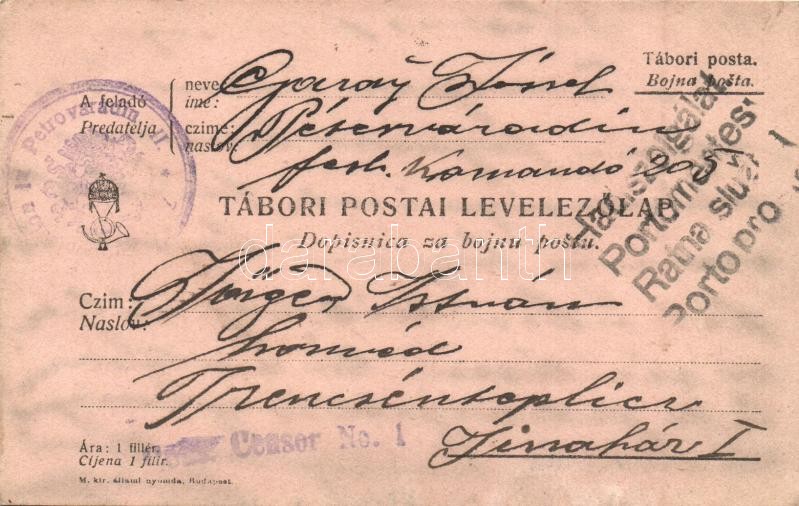 Tábori posta.
Bojna pošta.
A feladó
Predatelja
neve:
ime:
József
czime:
naslov:
Pétervárad
Komandó 205
Petrovaradin
Hadiszolgálat
Portómentes
Ratna služ
Porto pro
TÁBORI POSTAI LEVELEZŐLAP.
Dopisnica za bojnu poštu.
darabanth
Czim:
Naslov:
István
honvéd
Trencsénteplicz
Censor No. 1
I
Ára: 1 fillér.
Cijena 1 filir.
M. kir. állami nyomda, Budapest.